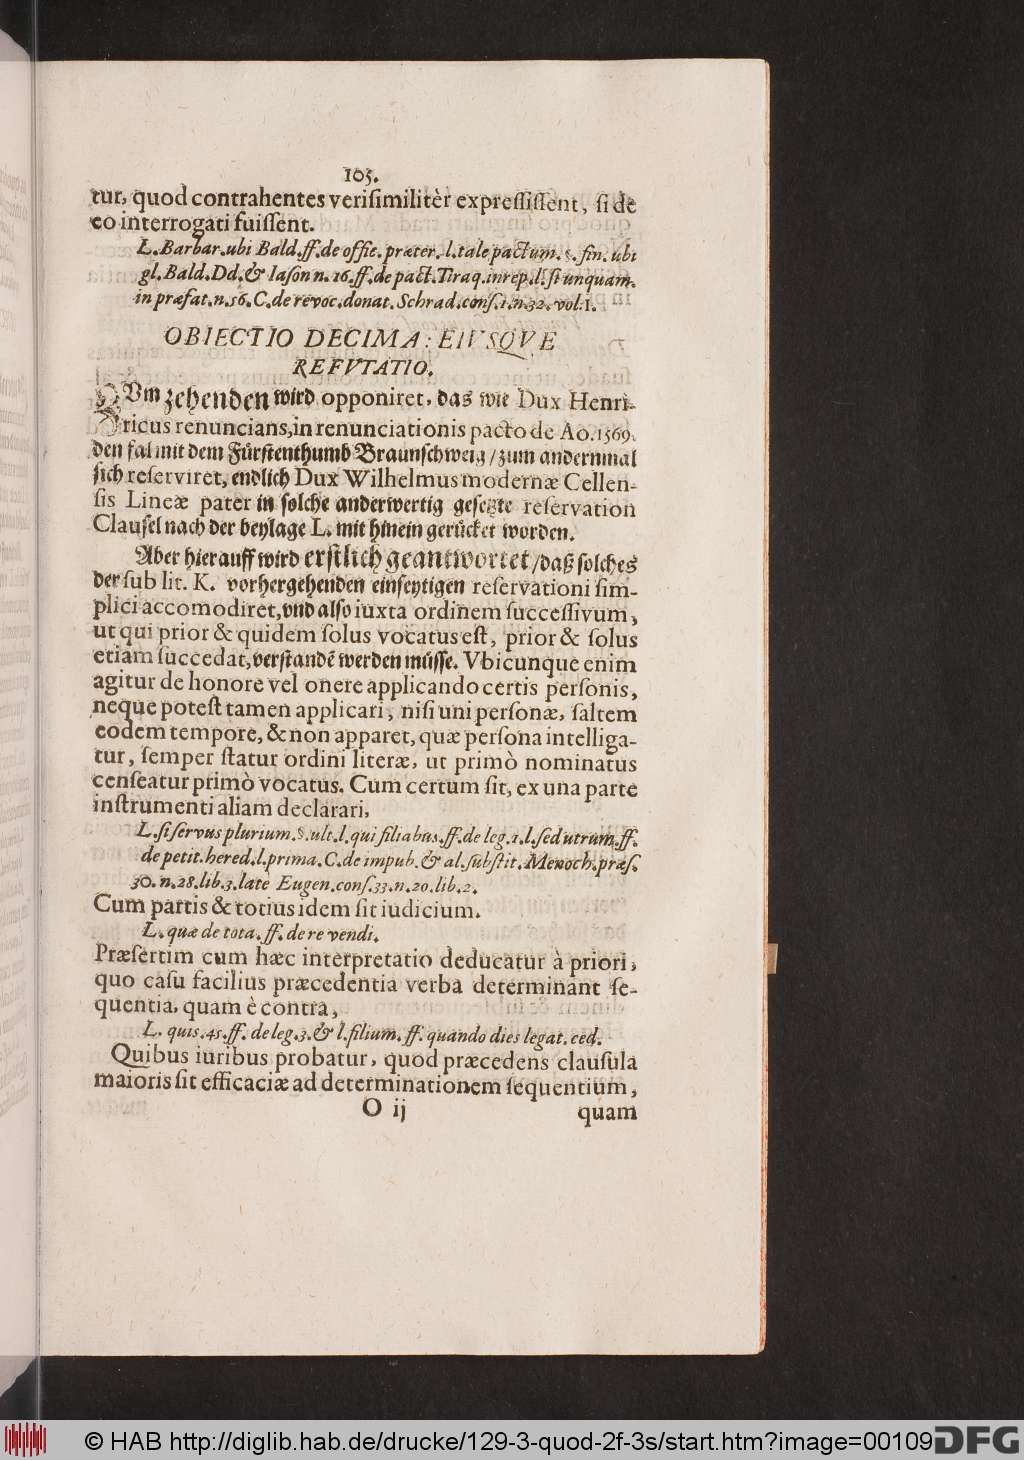 105.
tur, quod contrahentes verisimilitèr expressissent, si de
eo interrogati fuissent.
L. Barbar. ubi Bald. ff. de offic. præter. l. tale pactum. §. fin. ubi
gl. Bald. Dd. & Iason n. 16. ff. de pact. Tiraq. in rep. l. si unquam.
in præfat. n. 56. C. de revoc. donat. Schrad. cons. 1. n. 32. vol. 1.
OBIECTIO DECIMA: EIVSQVE
REFVTATIO.
ZVm zehenden wird opponiret, das wie Dux Henri-
ricus renuncians, in renunciationis pacto de Ao. 1569.
den fal mit dem Fürstenthumb Braunschweig / zum andernmal
sich reserviret, endlich Dux Wilhelmus modernæ Cellen-
sis Lineæ pater in solche anderwertig gesetzte reservation
Clausel nach der beylage L. mit hinein gerücket worden.
Aber hierauff wird erstlich geantwortet / daß solches
der sub lit. K. vorhergehenden einseytigen reservationi sim-
plici accomodiret, vnd also iuxta ordinem successivum,
ut qui prior & quidem solus vocatus est, prior & solus
etiam succedat, verstandẽ werden müsse. Vbicunque enim
agitur de honore vel onere applicando certis personis,
neque potest tamen applicari, nisi uni personæ, saltem
eodem tempore, & non apparet, quæ persona intelliga-
tur, semper statur ordini literæ, ut primò nominatus
censeatur primò vocatus. Cum certum sit, ex una parte
instrumenti aliam declarari,
L. si servus plurium. §. ult. l. qui filiabus. ff. de leg. 1. l. sed utrum. ff.
de petit. hered. l. prima. C. de impub. & al. substit. Menoch. præs.
30. n. 28. lib. 3. late Eugen. cons. 33. n. 20. lib. 2.
Cum partis & totius idem sit iudicium.
L. quæ de tota. ff. de re vendi.
Præsertim cum hæc interpretatio deducatur à priori,
quo casu facilius præcedentia verba determinant se-
quentia, quam è contra,
L. quis. 45. ff. de leg. 3. & l. filium. ff. quando dies legat. ced.
Quibus iuribus probatur, quod præcedens clausula
maioris sit efficaciæ ad determinationem sequentium,
O ij quam
© HAB http://diglib.hab.de/drucke/129-3-quod-2f-3s/start.htm?image=00109
DFG